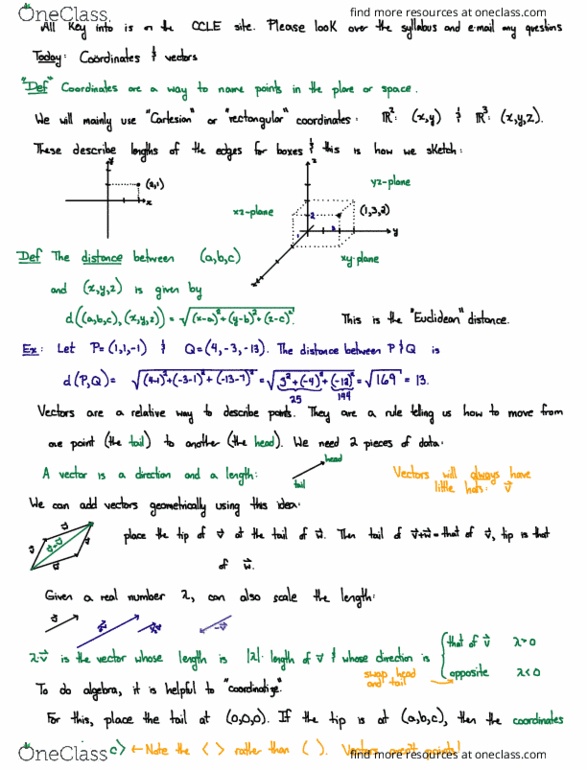 OneClass
find more resources at oneclass.com
All key info is on the CCLE site. Please look over the syllabus and e-mail any questions
Today: Coordinates & vectors
"Def" Coordinates are a way to name points in the plane or space.
We will mainly use "Cartesian" or "rectangular" coordinates: ℝ²: (x,y) & ℝ³: (x,y,z).
These describe lengths of the edges for boxes & this is how we sketch:
y
(2,1)
x
z
yz-plane
xz-plane
2
(1,3,2)
y
xy-plane
Def The distance between (a,b,c)
and (x,y,z) is given by
d((a,b,c),(x,y,z)) = √(x-a)²+(y-b)²+(z-c)²
This is the "Euclidean" distance.
Ex: Let P=(1,1,-1) & Q=(4,-3,-13). The distance between P & Q is
d(P,Q) = √(4-1)²+(-3-1)²+(-13-1)² = √3²+(-4)²+(-12)² = √169 = 13.
25
144
Vectors are a relative way to describe points. They are a rule telling us how to move from
one point (the tail) to another (the head). We need 2 pieces of data:
A vector is a direction and a length:
head
tail
Vectors will always have
little hats: v⃗
We can add vectors geometrically using this idea:
place the tip of v⃗ at the tail of w⃗. Then tail of v⃗+w⃗ = that of v⃗, tip is that
of w⃗.
Given a real number λ, can also scale the length:
λ·v⃗ is the vector whose length is |λ|· length of v⃗ & whose direction is
that of v⃗ λ>0
opposite λ<0
swap head
and tail
To do algebra, it is helpful to "coordinatize."
For this, place the tail at (0,0,0). If the tip is at (a,b,c), then the coordinates
OneClass
c> ← Note the < > rather than ( ). Vectors aren't points!
find more resources at oneclass.com